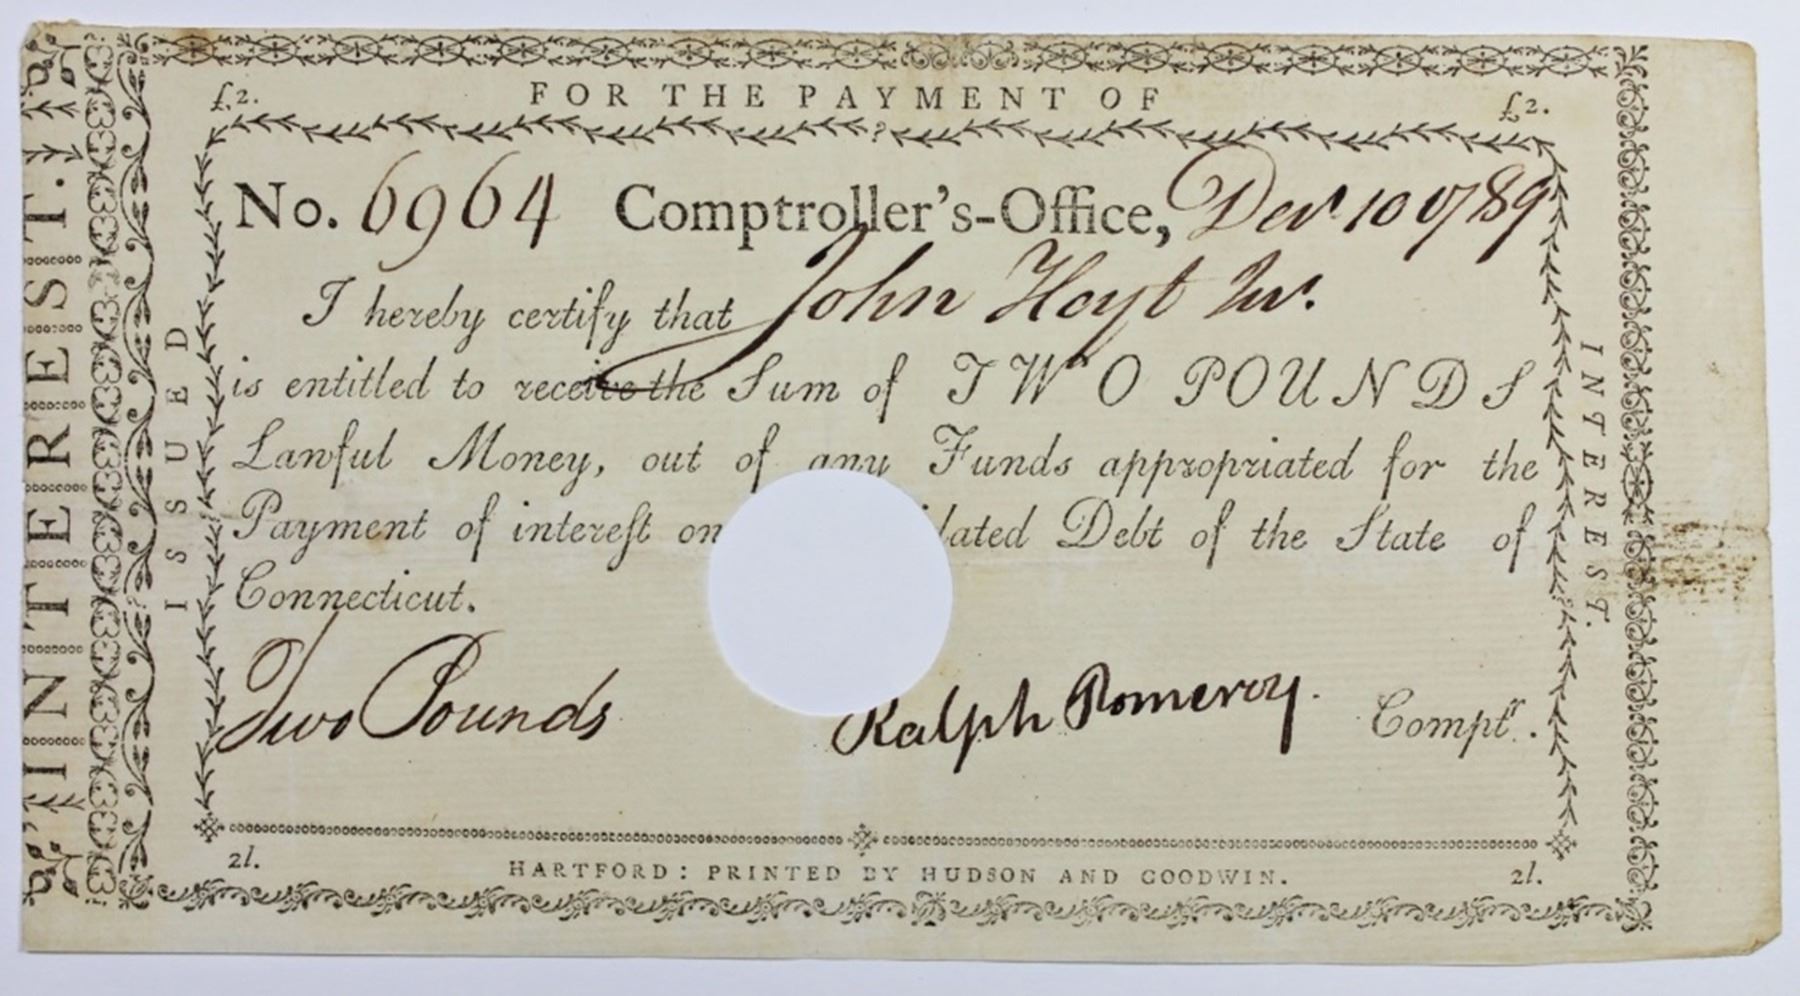 £2. FOR THE PAYMENT OF £2.
No. 6964 Comptroller's-Office, Decr 10 1789
I hereby certify that John Hoyt Junr.
is entitled to receive the Sum of TWO POUNDS
Lawful Money, out of any Funds appropriated for the
Payment of interest on dated Debt of the State of
Connecticut.
Two Pounds Ralph Pomeroy. Comptr.
2l. HARTFORD: PRINTED BY HUDSON AND GOODWIN. 2l.
INTEREST.
ISSUED
INTEREST.